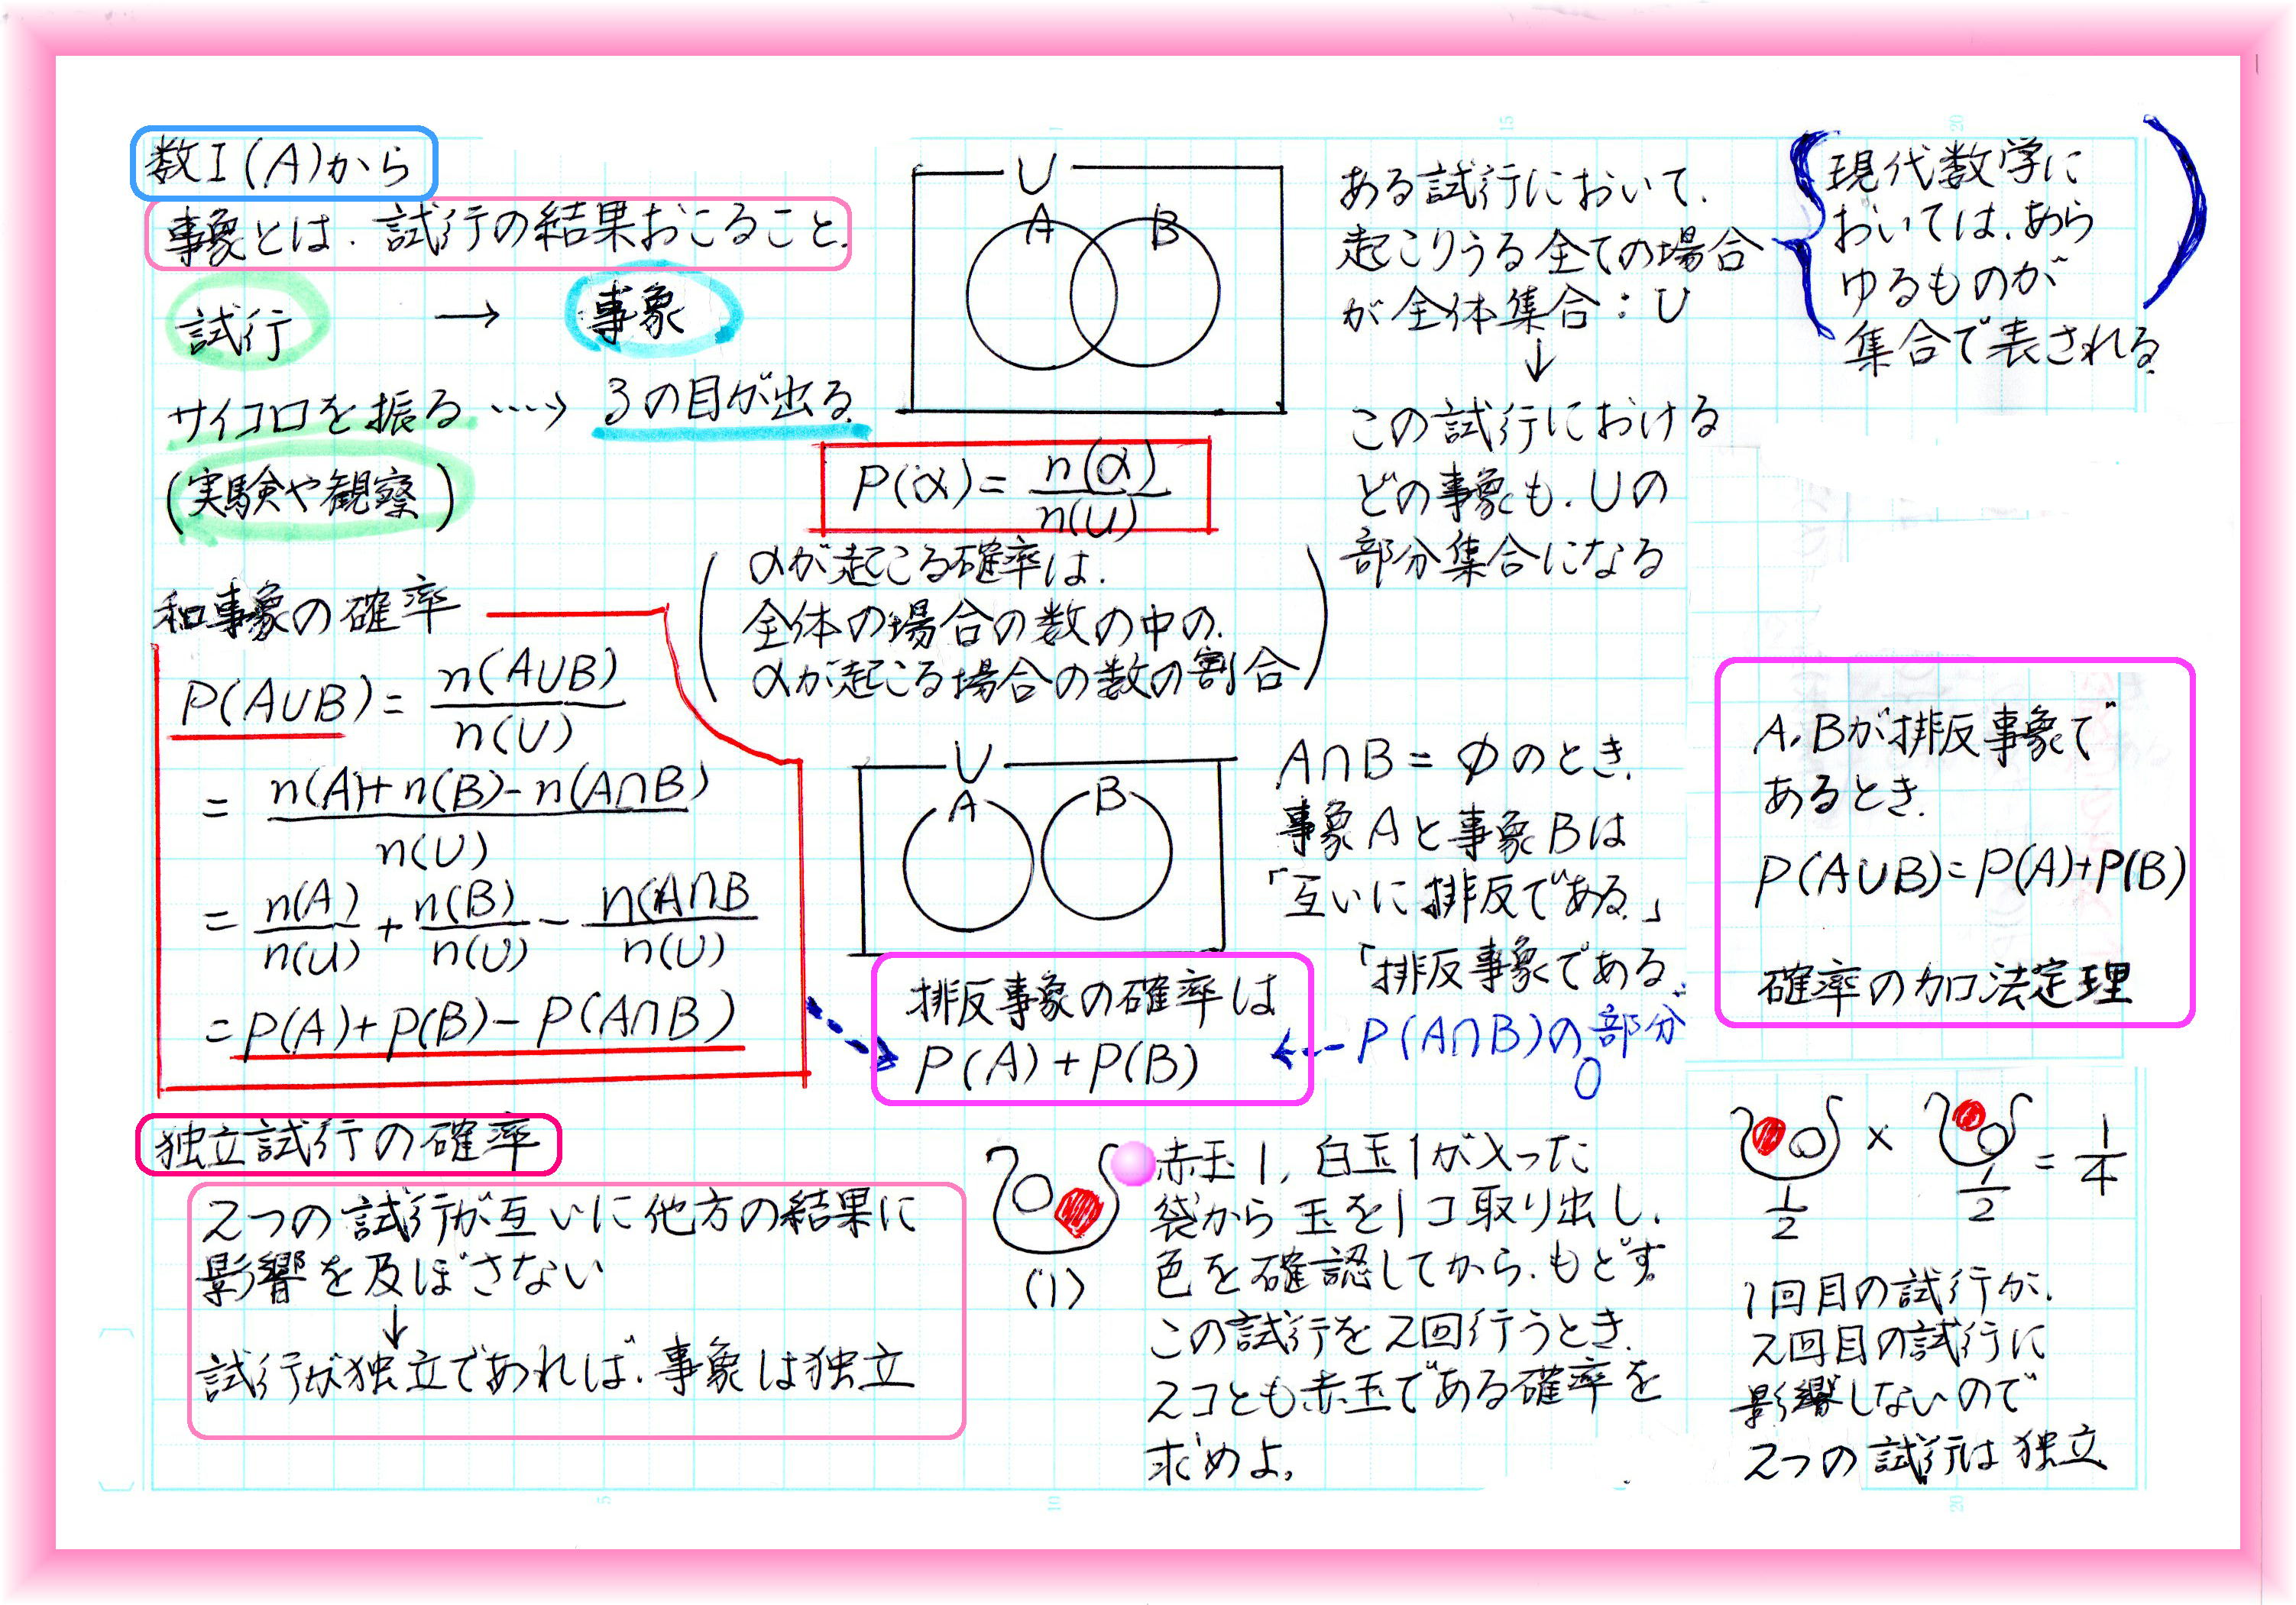 数I(A)から
事象とは、試行の結果おこること.
試行 → 事象
サイコロを振る ···→ 3の目が出る
(実験や観察)
U
A B
P(α)= n(α)/n(U)
αが起こる確率は.
全体の場合の数の中の.
αが起こる場合の数の割合
ある試行において.
起こりうる全ての場合
が全体集合:U
↓
この試行における
どの事象も.Uの
部分集合になる
現代数学に
おいては.あら
ゆるものが
集合で表される.
和事象の確率
P(A∪B)= n(A∪B)/n(U)
= n(A)+n(B)-n(A∩B)/n(U)
= n(A)/n(U) + n(B)/n(U) - n(A∩B/n(U)
=P(A)+P(B)-P(A∩B)
U
A B
A∩B=φのとき.
事象Aと事象Bは
「互いに排反である.」
「排反事象である
排反事象の確率は
P(A)+P(B)
P(A∩B)の部分が
0
A,Bが排反事象で
あるとき.
P(A∪B)=P(A)+P(B)
確率の加法定理
独立試行の確率
2つの試行が互いに他方の結果に
影響を及ぼさない
↓
試行が独立であれば.事象は独立
(1)
赤玉1,白玉1が入った
袋から玉を1コ取り出し.
色を確認してから.もどす。
この試行を2回行うとき.
2コとも赤玉である確率を
求めよ。
1/2 × 1/2 = 1/4
1回目の試行が.
2回目の試行に
影響しないので
2つの試行は独立.
5
10
15
20
20